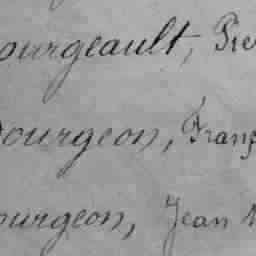 ourgeault, Pie
Bourgeon, Franç
ourgeon, Jean